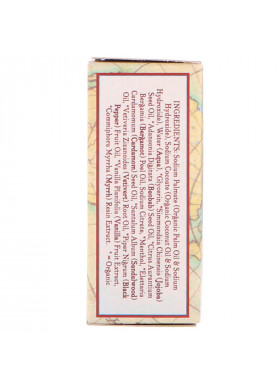 INGREDIENTS: Sodium Palmate (Organic Palm Oil & Sodium
Hydroxide), Sodium Cocoate (Organic Coconut Oil & Sodium
Hydroxide), Water (Aqua), Glycerin, *Simmondsia Chinensis (Jojoba)
Seed Oil, *Adansonia Digitata (Baobab) Seed Oil, *Citrus Aurantium
Bergamia (Bergamot) Peel Oil, Sodium Citrate, *Menthol, *Elettaria
Cardamomum (Cardamom) Seed Oil, *Santalum Album (Sandalwood)
Oil, *Vetiveria Zizanoides (Vetiver) Root Oil, *Piper Nigrum (Black
Pepper) Fruit Oil, *Vanilla Planifolia (Vanilla) Fruit Extract,
*Commiphora Myrrha (Myrrh) Resin Extract.
*= Organic